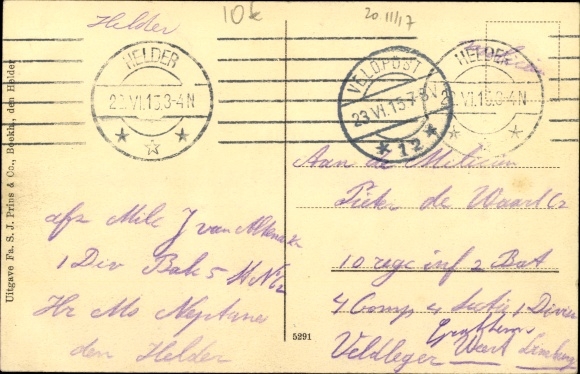 Helder
10€
20 III/17
HELDER
23.VI.15.3-4N
VELDPOST
23.VI.15.7-8N
12
HELDER
VI.15.3-4N
Uitgave Fa. S. J. Prins & Co., Boekh., den Helder
afz Milc J van Altena
1 Div Bak 5
Hr Ms Neptunes
den Helder
5291
Aan de Milicien
Pieter de Waard
10 rege inf 2 Bat
4 Comp 4 Sectie 1 Divisie
Veldleger Weert Limburg